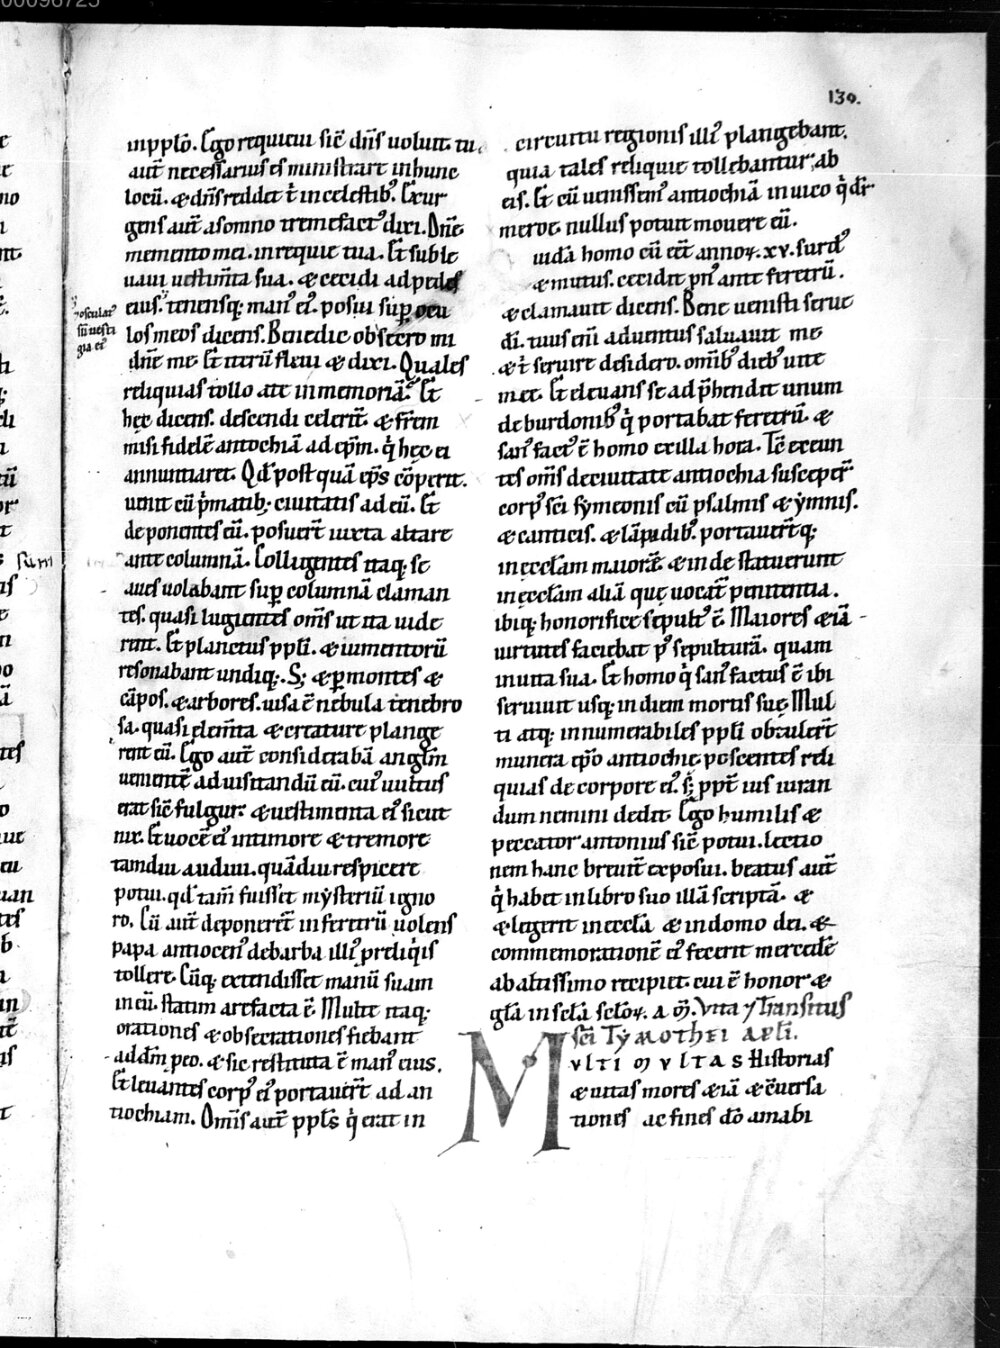 00098725
130.
in pplo. Ego requieui sic̄ dn̄s uoluit. tu
aut̄ necessarius es ministrare in hunc
locū. & dn̄s reddet t̄ in celestib;. Exur
gens aut̄ a somno tremefact' dixi. Dn̄e
memento mei. in requie tua. Et suble
uaui uestim̄ta sua. & cecidi ad pedes
eius. tenensq; man' ei'. posui sup ocu
los meos dicens. Benedic obsecro mi
dn̄e me. Et iterū fleui & dixi. Quales
reliquias tollo a te in memoriā. Et
hęc dicens. descendi celerit̄. & fr̄em
misi fidelē antiochiā ad ep̄m. q̇ hęc ei
annuntiaret. Qd̄ postquā ep̄s cōperit.
uenit cū ṗmatib; ciuitatis ad eū. Et
deponentes eū. posuer̄t iuxta altare
ante columnā. Colligentes itaq; se
aues uolabant sup columnā claman
tes. quasi lugientes om̄s ut ita uide
rent. Et planctus ppl̄i. & iumentorū
resonabant undiq;. S; & p montes &
cāpos. & arbores. uisa ē nebula tenebro
sa. quasi elem̄ta & creature plange
rent eū. Ego aut̄ considerabā angl̄m
uementē ad uisitandū eū. cui' uultus
erat sic̄ fulgur. & uestimenta ei' sicut
nix. Et uocē ei' in timore & tremore
tamdiu audiui. quādiu respicere
potui. qd̄ tam̄ fuisset mysteriū igno
ro. Cū aut̄ deponerēt in feretrū uolens
papa antiocen' de barba illi' p reliq̇is
tollere. Cūq; extendisset manū suam
in eū. statim arefacta ē. Multe itaq;
orationes & obsecrationes fiebant
ad dm̄ p eo. & sic restituta ē man' eius.
Et leuantes corp' ei' portauer̄t ad an
tiochiam. Om̄s aut̄ ppl̄s q̇ erat in
circuitu regionis illi' plangebant.
quia tales reliquie tollebantur; ab
eis. Et cū uenissem' antiochiā in uico q̇ dr̄
meroe. nullus potuit mouere eū.
uidā homo cū eēt annoꝝ. xv. surd'
& mutus. cecidit pn' ante feretrū.
& clamauit dicens. Bene uenisti serue
di. tuus eni aduentus saluauit me
& t̄ seruire desidero. omib; dieb' uite
mee. Et eleuans se adp̄hendit unum
de burdonib; q̇ portabat feretrū. &
san' fact' ē homo ex illa hora. Tc̄ exeun
tes om̄s de ciuitate antiochia susceper̄t
corp' sc̄i symeonis cū psalmis & ymnis.
& canticis. & lāpadib;. portauer̄tq;
in eccl̄am maiorē & inde statuerunt
in eccl̄am aliā quę uocat̄ penitentia.
ibiq; honorifice sepult' ē. Maiores & iā
uirtutes faciebat p' sepulturā. quam
in uita sua. Et homo q̇ san' factus ē ibi
seruiuit usq; in diem mortis suę. Mul
ti atq; innumerabiles ppl̄i obtuler̄t
munera ep̄o antiochię poscentes reli
quias de corpore ei'. s; ppt̄ ius iuran
dum nemini dedit. Ego humilis &
peccator antonius sic̄ potui. lectio
nem hanc breuit̄ exposui. beatus aut̄
q̇ habet in libro suo illā scriptā. &
& legerit in eccl̄a & in domo dei. &
commemorationē ei' fecerit mercedē
ab altissimo recipiet. cui ē honor &
gl̄a in sc̄la sc̄loꝝ. a m̄. Vita ⁊ transitus
sc̄i Tymothei apl̄i.
MVLTI MVLTAS historias
& uitas mores & iā & cuersa
tiones ac fines do amabi